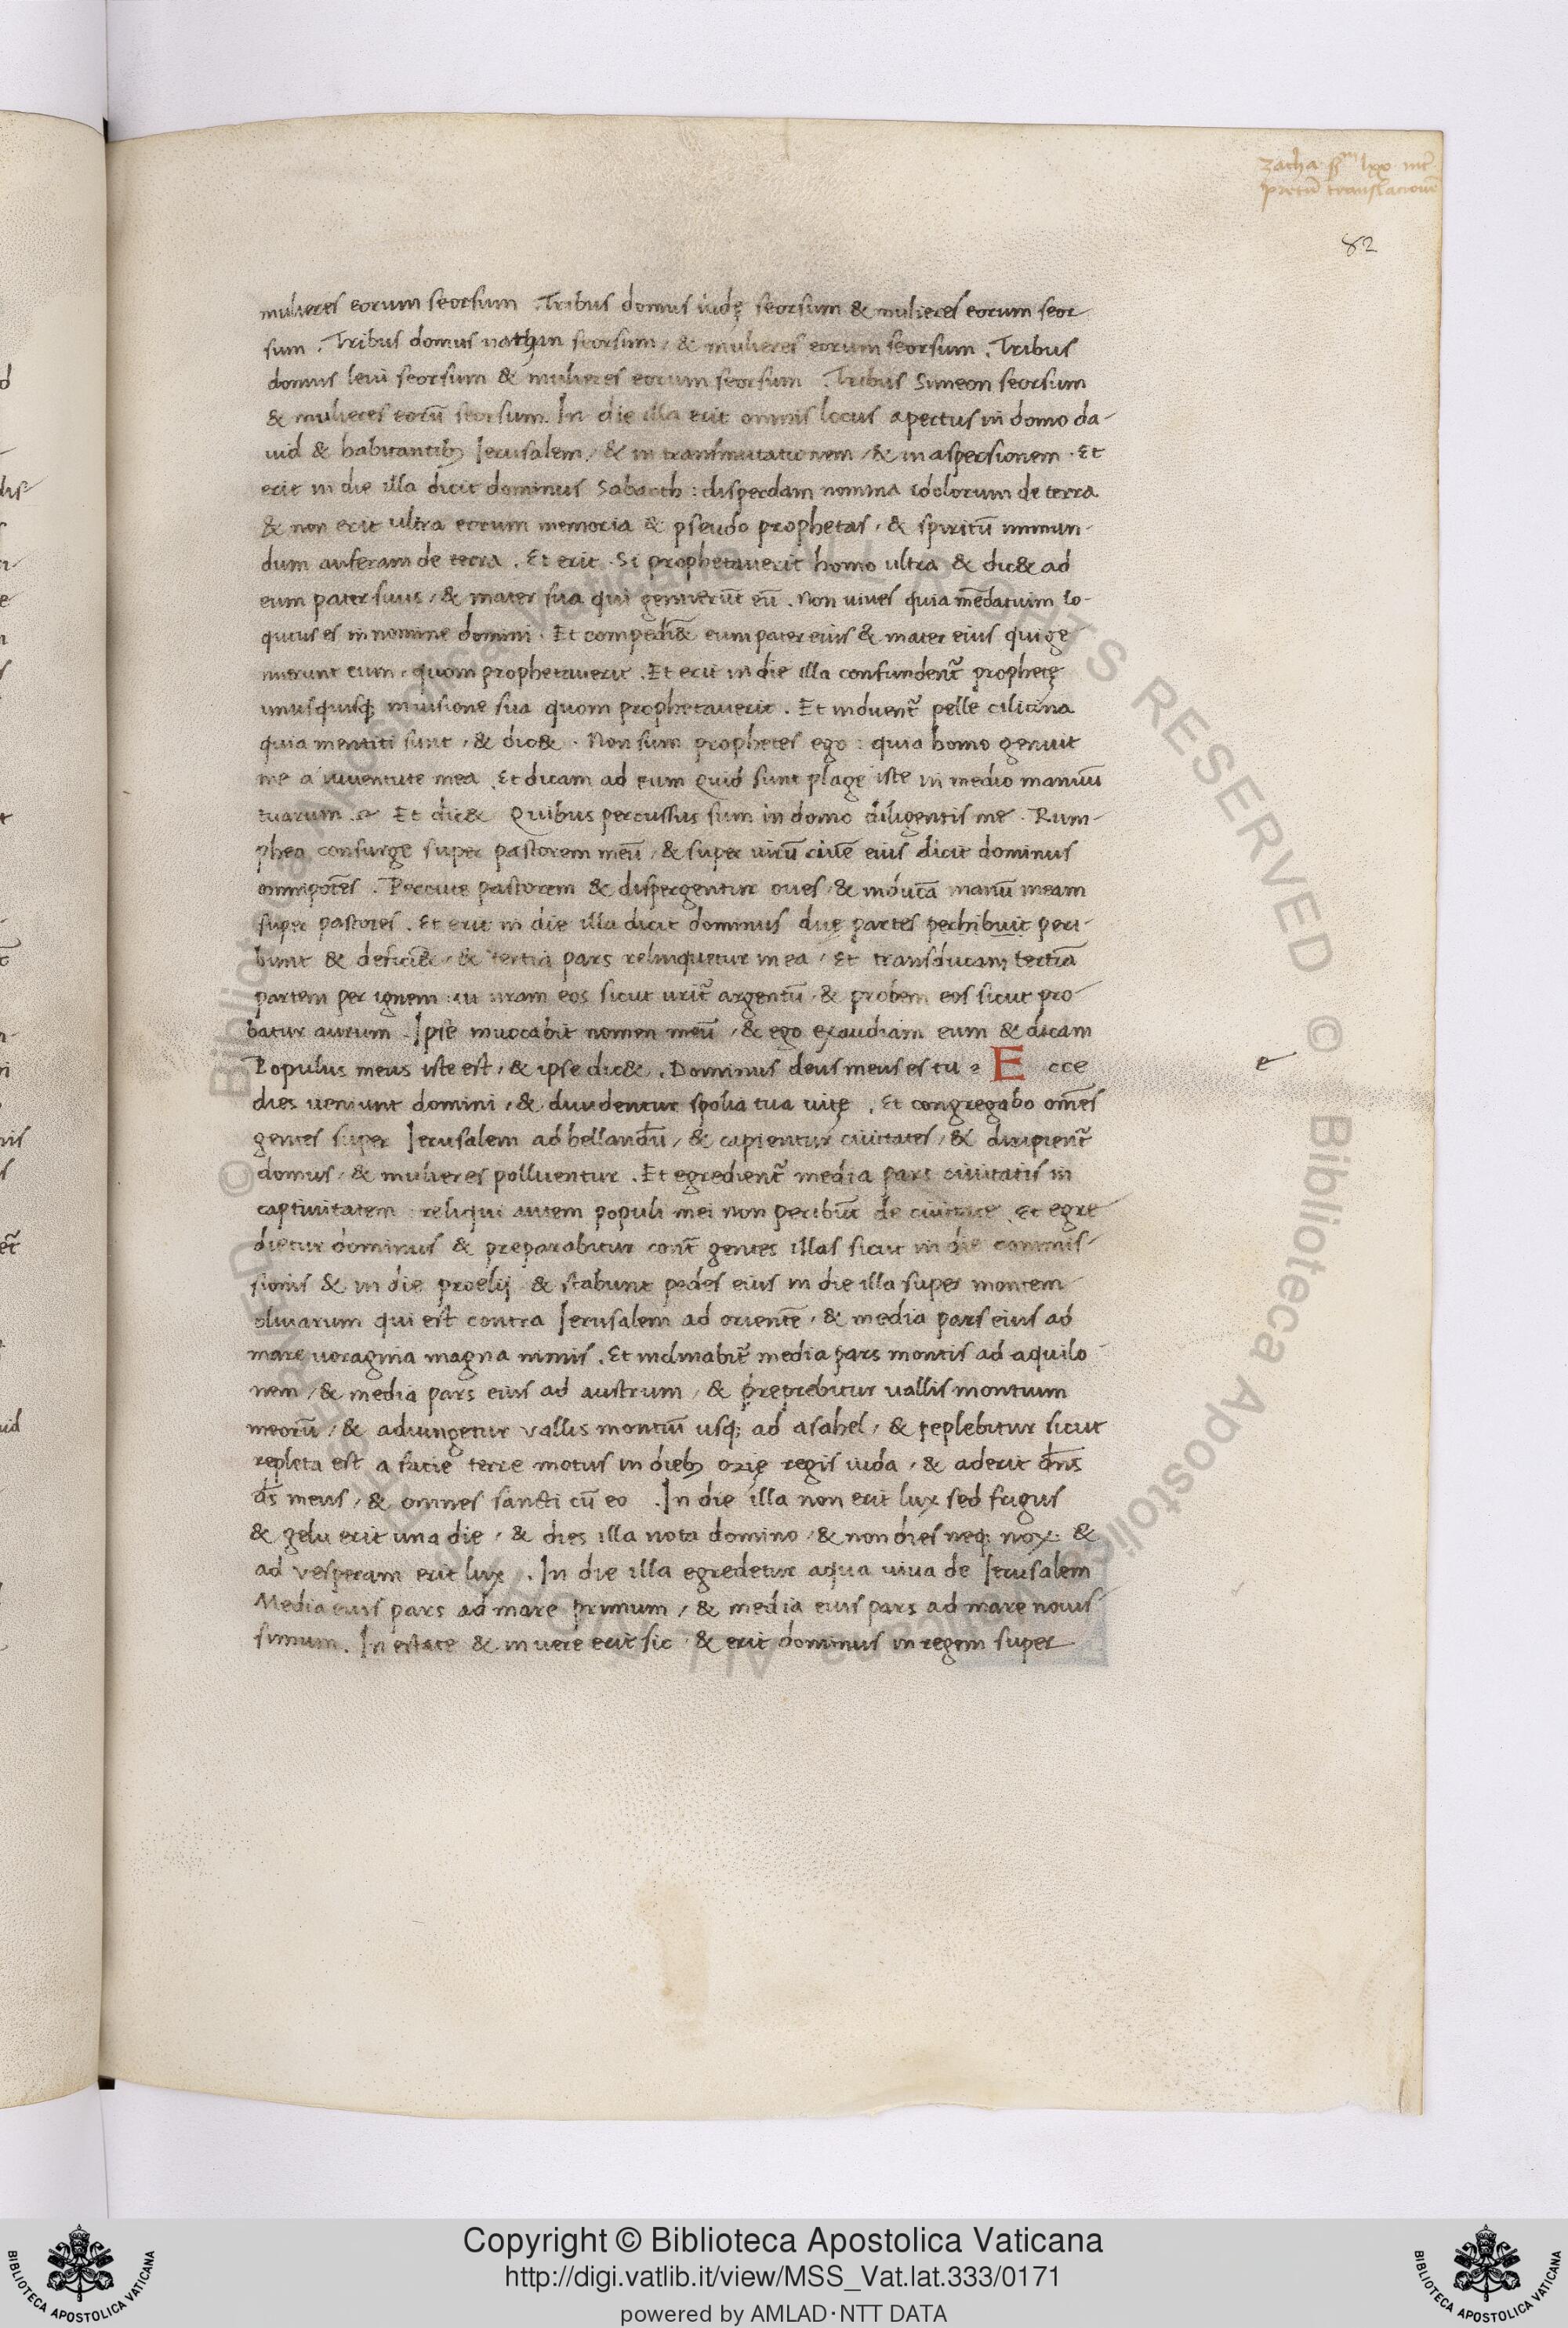 zacha s̄m lxx int̄
pretū translationē
82
mulieres eorum seorsum . Tribus domus iudę seorsum & mulieres eorum seor
sum . Tribus domus nathan seorsum / & mulieres eorum seorsum . Tribus
domus leui seorsum & mulieres eorum seorsum . Tribus Simeon seorsum
& mulieres eorū seorsum. In die illa erit omnis locus apertus in domo da-
uid & habitantibꝫ Ierusalem / & in transmutationem / & in aspersionem . Et
erit in die illa dicit dominus Sabaoth : disperdam nomina idolorum de terra
& non erit ultra eorum memoria & pseudo prophetas / & spiritū immun-
dum auferam de terra . Et erit . Si prophetauerit homo ultra & dic& ad
eum pater suus / & mater sua qui genuerūt eū . Non uiues quia mēdatium lo-
qutus es in nomine domini . Et compedi& eum pater eius & mater eius qui ge
nuerunt eum , quom prophetauerit . Et erit in die illa confundent̄ prophetę
unusquisqꝫ in uisione sua quom prophetauerit . Et induent̄ pelle cilicina
quia mentiti sunt , & dic& . Non sum prophetes ego : quia homo genuit
me a iuuentute mea . Et dicam ad eum Quid sunt plage iste in medio manuū
tuarum . Et dic& Quibus percussus sum in domo diligentis me . Rum-
phea consurge super pastorem meū / & super uirū ciuē eius dicit dominus
omnipotēs . Percute pastorem & dispergentur oues / & inducā manū meam
super pastores . Et erit in die illa dicit dominus duę partes perhibuit peri-
bunt & defici& / & tertia pars relinquetur in ea / Et transducam tertiā
partem per ignem : ut uram eos sicut urit̄ argentū / & probem eos sicut pro-
batur aurum . Ipse inuocabit nomen meū / & ego exaudiam eum & dicam
Populus meus iste est / & ipse dic& . Dominus deus meus es tu E cce
e
dies ueniunt domini / & diuidentur spolia tua uitę . Et congregabo om̄es
gentes super Ierusalem ad bellandū / & capientur ciuitates / & diripient̄
domus / & mulieres polluentur . Et egredient̄ media pars ciuitatis in
captiuitatem : reliqui autem populi mei non peribūt de ciuitate . Et egre
dietur dominus & preparabitur cont̄ gentes illas sicut in die commis-
sionis & in die proelij & stabunt pedes eius in die illa super montem
oliuarum qui est contra Ierusalem ad orientē / & media pars eius ad
mare uoragina magna nimis . Et inclinabit̄ media pars montis ad aquilo
nem / & media pars eius ad austrum / & preprebitur uallis montium
meorū / & adiungetur uallis montiū usqꝫ ad asahel / & replebitur sicut
repleta est a facie terre motus in diebꝫ ozię regis iuda / & aderit dn̄s
ds̄ meus / & omnes sancti cū eo . In die illa non erit lux sed frigus
& gelu erit una die / & dies illa nota domino / & non dies neqꝫ nox : &
ad uesperam erit lux . In die illa egredetur aqua uiua de Ierusalem
Media eius pars ad mare primum / & media eius pars ad mare nouis-
simum . In estate & in uere erit sic / & erit dominus in regem super
Copyright © Biblioteca Apostolica Vaticana
http://digi.vatlib.it/view/MSS_Vat.lat.333/0171
powered by AMLAD·NTT DATA
BIBLIOTECA APOSTOLICA VATICANA
BIBLIOTECA APOSTOLICA VATICANA